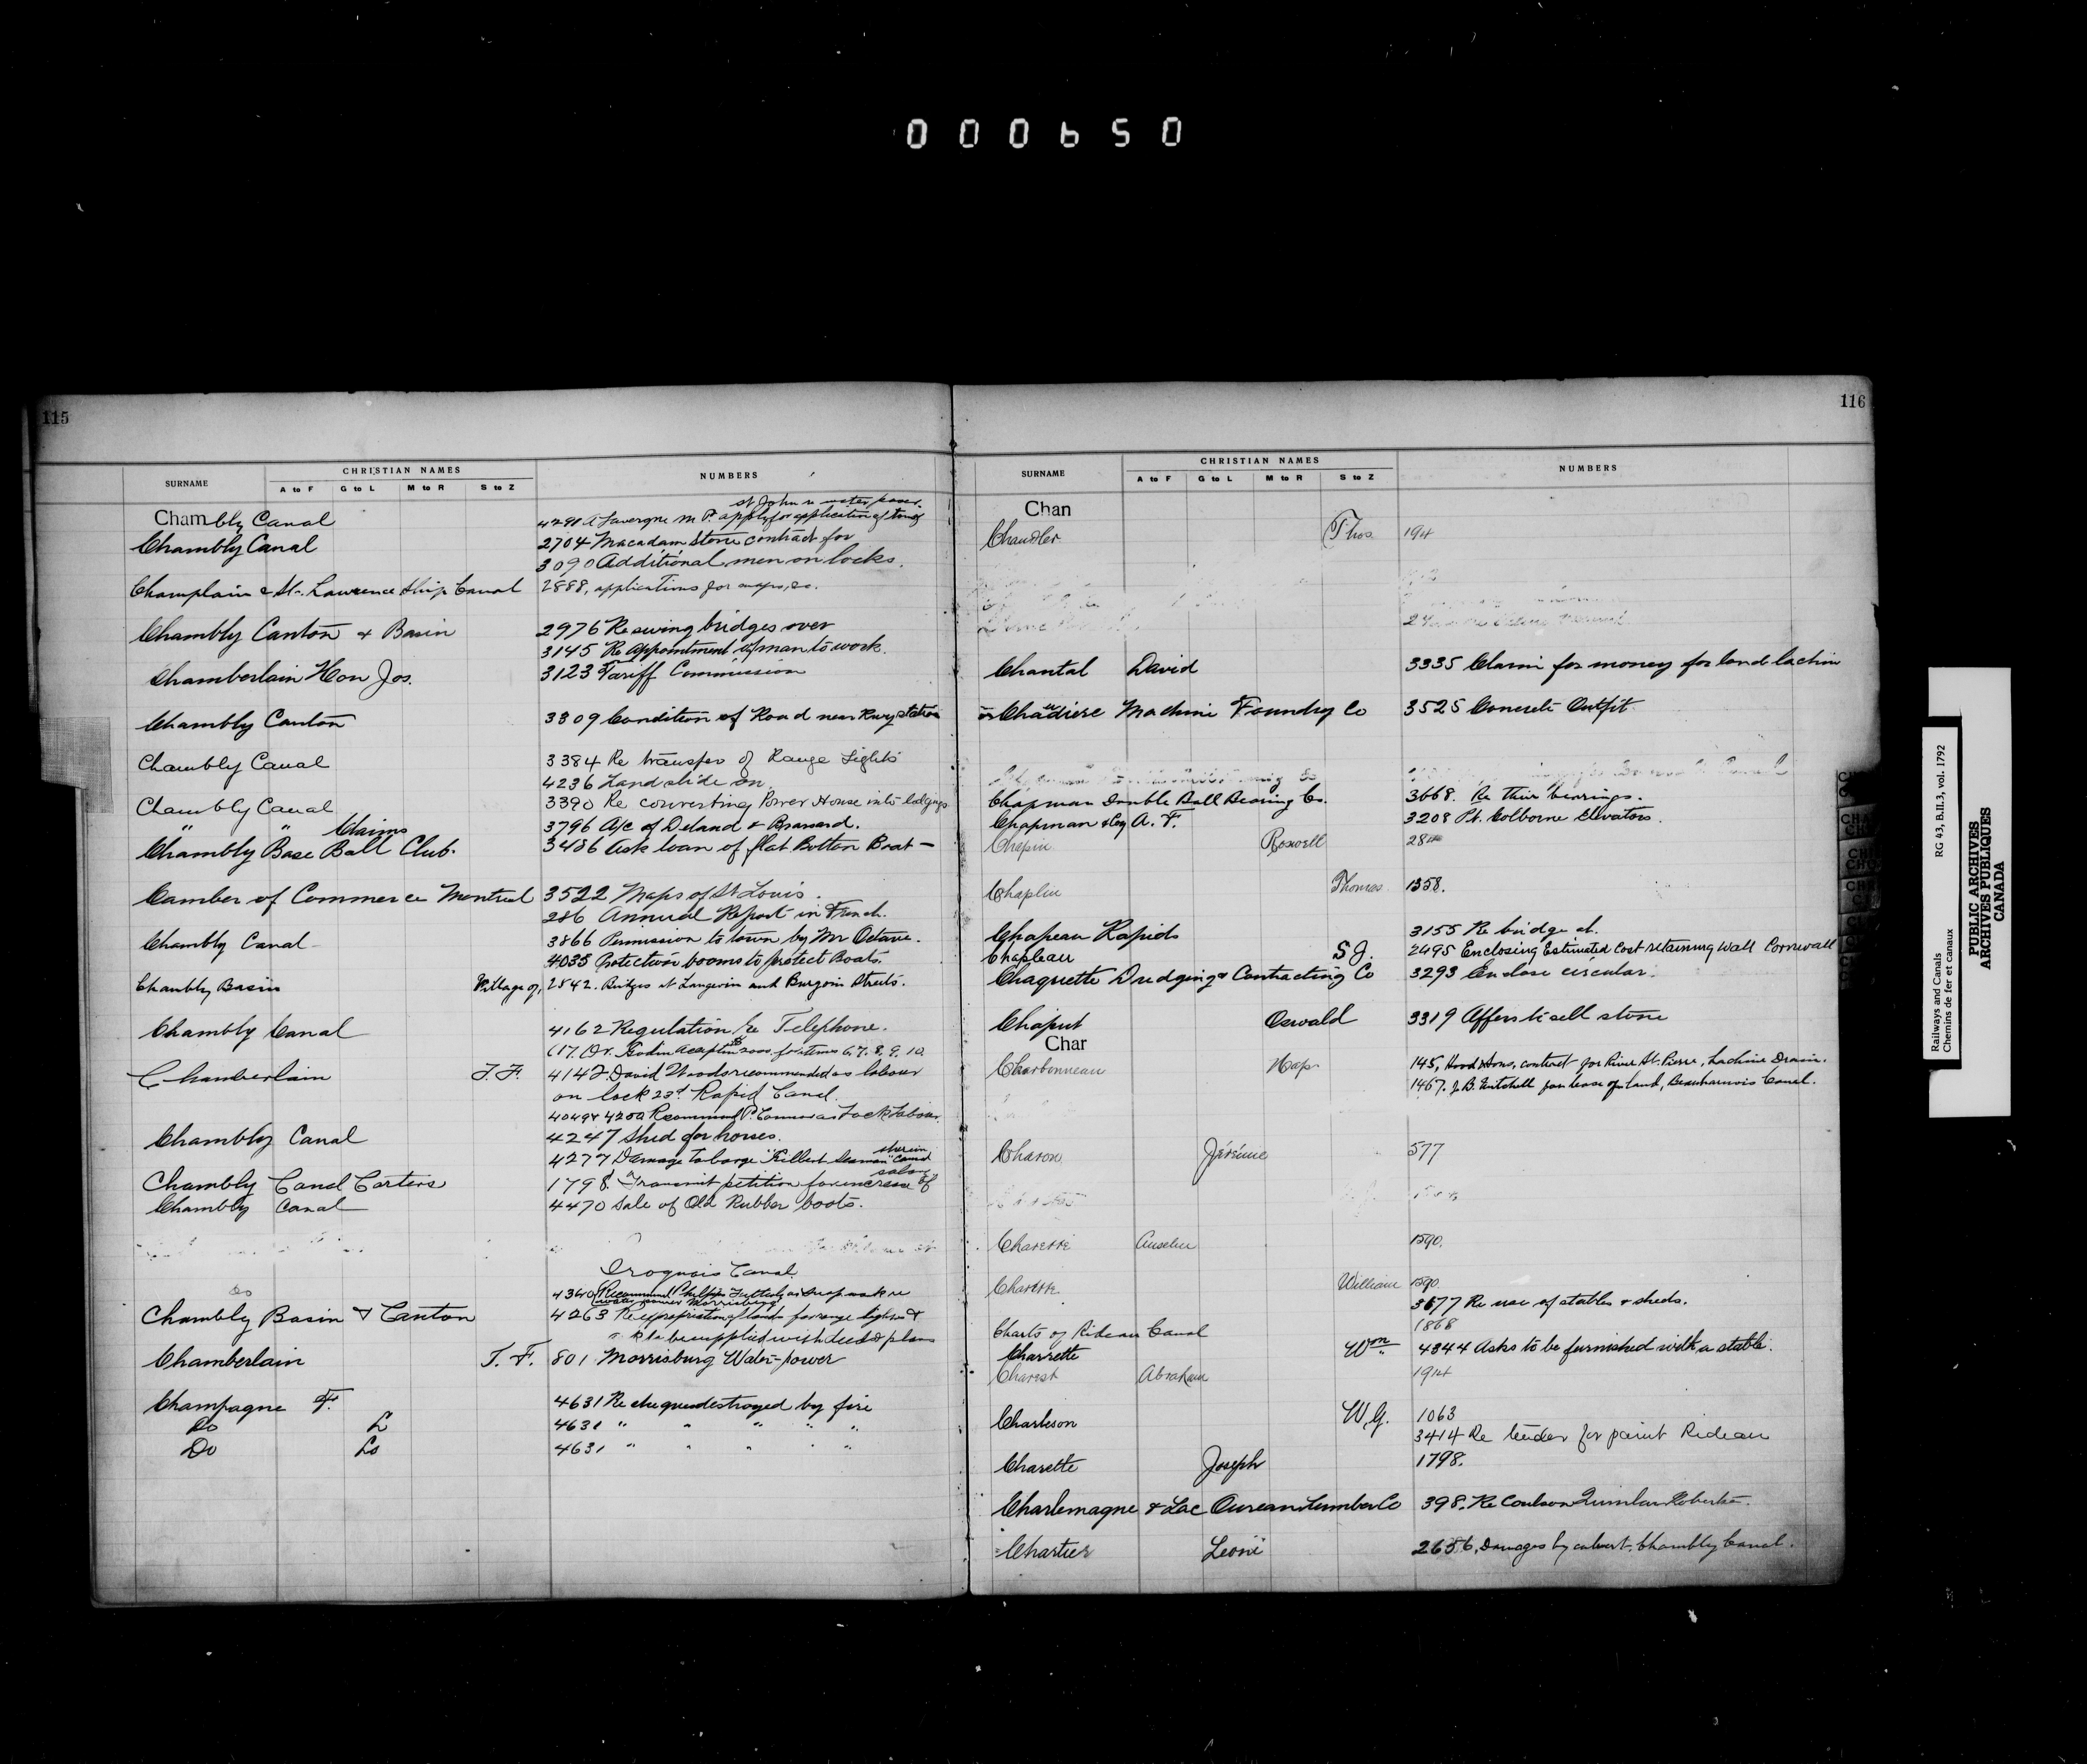 000650
115
SURNAME
CHRISTIAN NAMES
A to F G to L M to R S to Z
NUMBERS
St Johns water power
Chambly Canal 4291 A Lavergne M.P. apply for application of town of
Chambly Canal 2704 Macadam stone contract for
3090 Additional men on locks.
Champlain & St. Lawrence Ship Canal 2888, applications for maps, &c.
Chambly Canton & Basin 2976 Re swing bridges over
3145 Re Appointment of man to work.
Chamberlain Hon Jos. 3123 Tariff Commission
Chambly Canton 3309 Condition of Road near Rwy station
Chambly Canal 3384 Re transfer of Range Lights
4236 Land slide on
Chambly Canal 3390 Re converting Power House into lodgings
" " Claims 3796 A/c of Deland & Brassard.
Chambly Base Ball Club. 3486 Ask loan of flat Bottom Boat —
Camber of Commerce Montreal 3522 Maps of St Louis.
286 Annual Report in French.
Chambly Canal 3866 Permission to town by Mr Octave.
4035 Protection booms to protect Boats.
Chambly Basin Village of, 2842. Bridges at Langevin and Burgoin Streets.
Chambly Canal 4162 Regulation re Telephone.
Chamberlain T. F. 4142 David Woods recommended as labour
on lock 23rd Rapid Canal.
4049 & 4250 Recommend P. Connor as Lock Labour
Chambly Canal 4247 Shed for horses.
4277 Damage to barge "Filbert Seaman" Canal
salary
Chambly Canal Carters 1798. Transmit petition for increase of
Chambly Canal 4470 Sale of Old Rubber boots.
Iroquois Canal
do 4340 Recommend
water power Morrisburg
Chambly Basin & Canton 4263 Re expropriation of lands for range lights &
to be supplied with deed & plans
Chamberlain T. F. 801 Morrisburg Water-power
Champagne F. 4631 Re cheques destroyed by fire
Do L 4631 " " " " "
Do Ls 4631 " " " " "
116
SURNAME
CHRISTIAN NAMES
A to F G to L M to R S to Z
NUMBERS
Chan
Chandler Thos 194
Chantal David 3335 Claim for money for land Lachine
or Chaudiere Machine Foundry Co 3525 Concrete Outfit
Chapman Double Ball Bearing Co. 3668. Re their bearings.
Chapman & Coy A. F. 3208 Pt. Colborne Elevators.
Chapin Roswell 28
Chaplin Thomas 1358.
Chapeau Rapids 3155 Re bridge at.
Chapleau S J. 2495 Enclosing Estimated Cost retaining Wall Cornwall
Chaquette Dredging & Contracting Co 3293 Enclose circular.
Chaput Oswald 3319 Offers to sell stone
Char
Charbonneau Nap. 145, Hood & Sons, contract for River St. Pierre, Lachine Drain.
1467. J. B. Mitchell for lease of land, Beauharnois Canal.
Charon Jérémie 577
Charette Anselm 1590.
Charette William 1590
3677 Re use of stables & sheds.
Charts of Rideau Canal 1868
Charrette Wm 4344 Asks to be furnished with a stable.
Charest Abraham 1914
Charleson W. G. 1063
3414 Re tender for paint Rideau
Charette Joseph 1798.
Charlemagne & Lac Oureau Lumber Co 398. Re Coulson Quinlan Roberts.
Chartier Leoni 2656, Damages by culvert, Chambly Canal.
Railways and Canals
Chemins de fer et canaux
RG 43, B.II.3, vol. 1792
PUBLIC ARCHIVES
ARCHIVES PUBLIQUES
CANADA